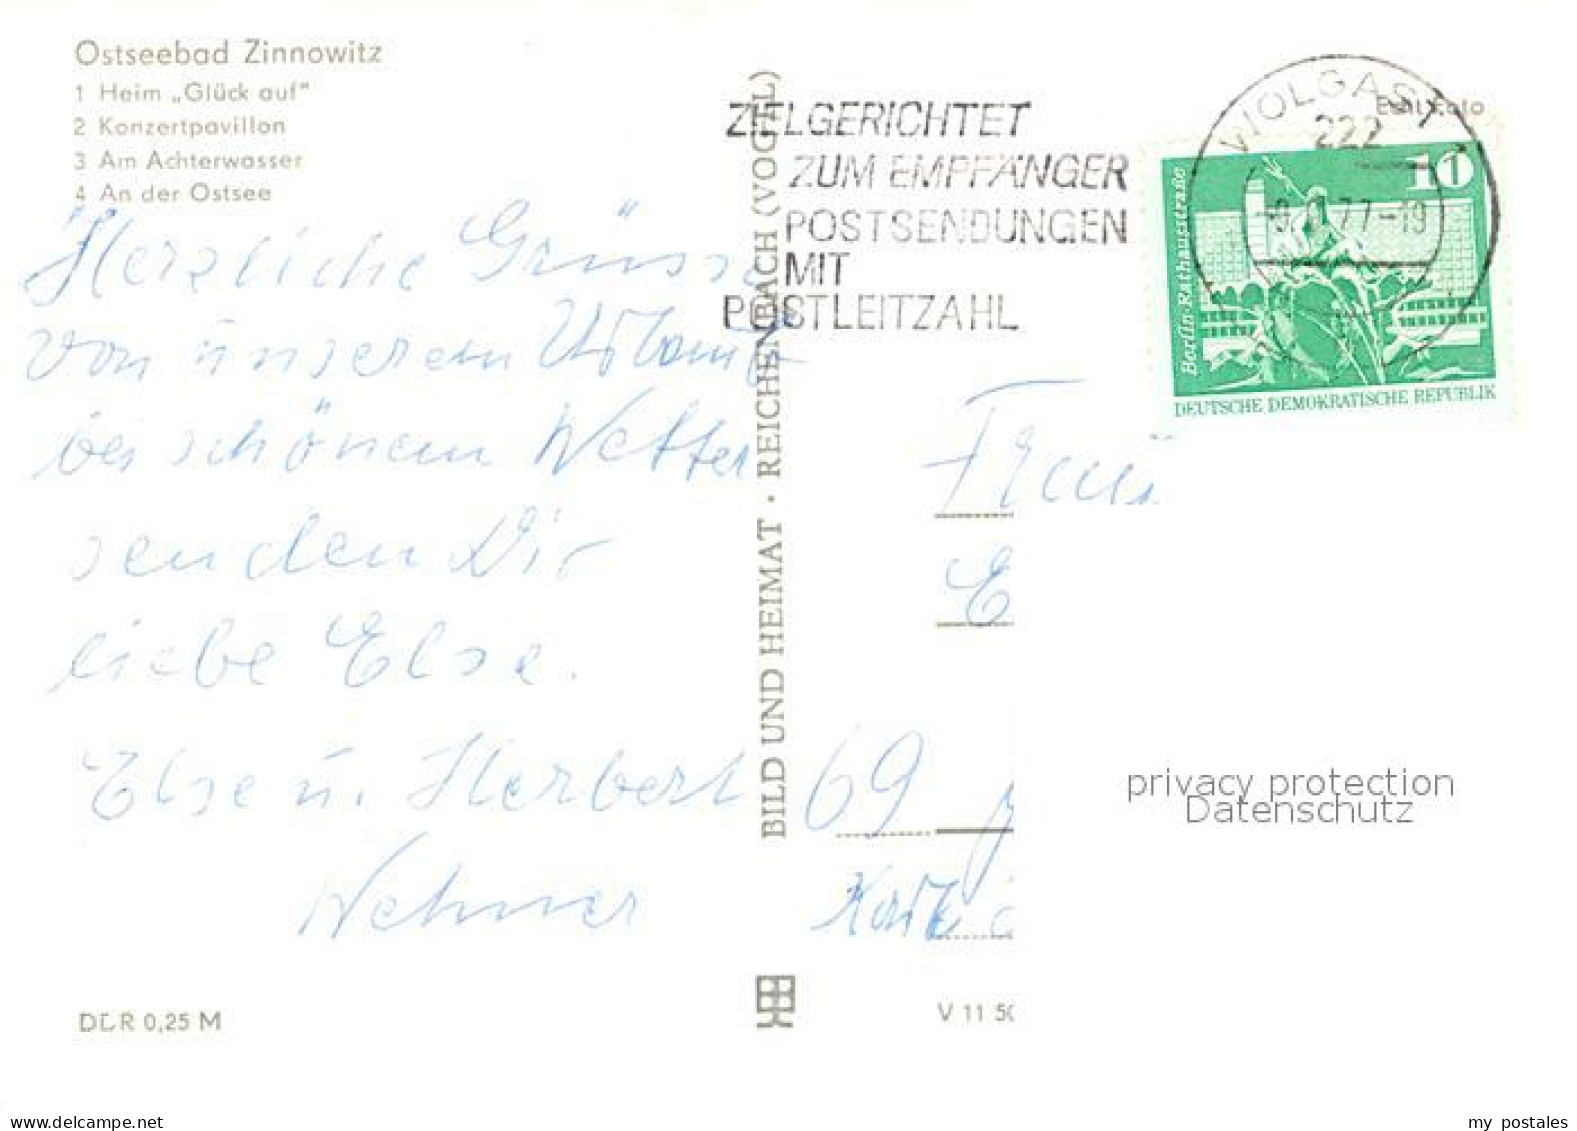 Ostseebad Zinnowitz
1 Heim „Glück auf“
2 Konzertpavillon
3 Am Achterwasser
4 An der Ostsee
Herzliche Grüsse
von unserem Urlaub
bei schönem Wetter
senden Dir
liebe Else.
Else u. Herbert
DDR 0,25 M
BILD UND HEIMAT · REICHENBACH (VOGTL)
ZIELGERICHTET
ZUM EMPFÄNGER
POSTSENDUNGEN
MIT
POSTLEITZAHL
WOLGAST
222
77-19
10
Berlin-Rathausstraße
DEUTSCHE DEMOKRATISCHE REPUBLIK
Frau
E
69
privacy protection
Datenschutz
V 11 50
www.delcampe.net
my_postales